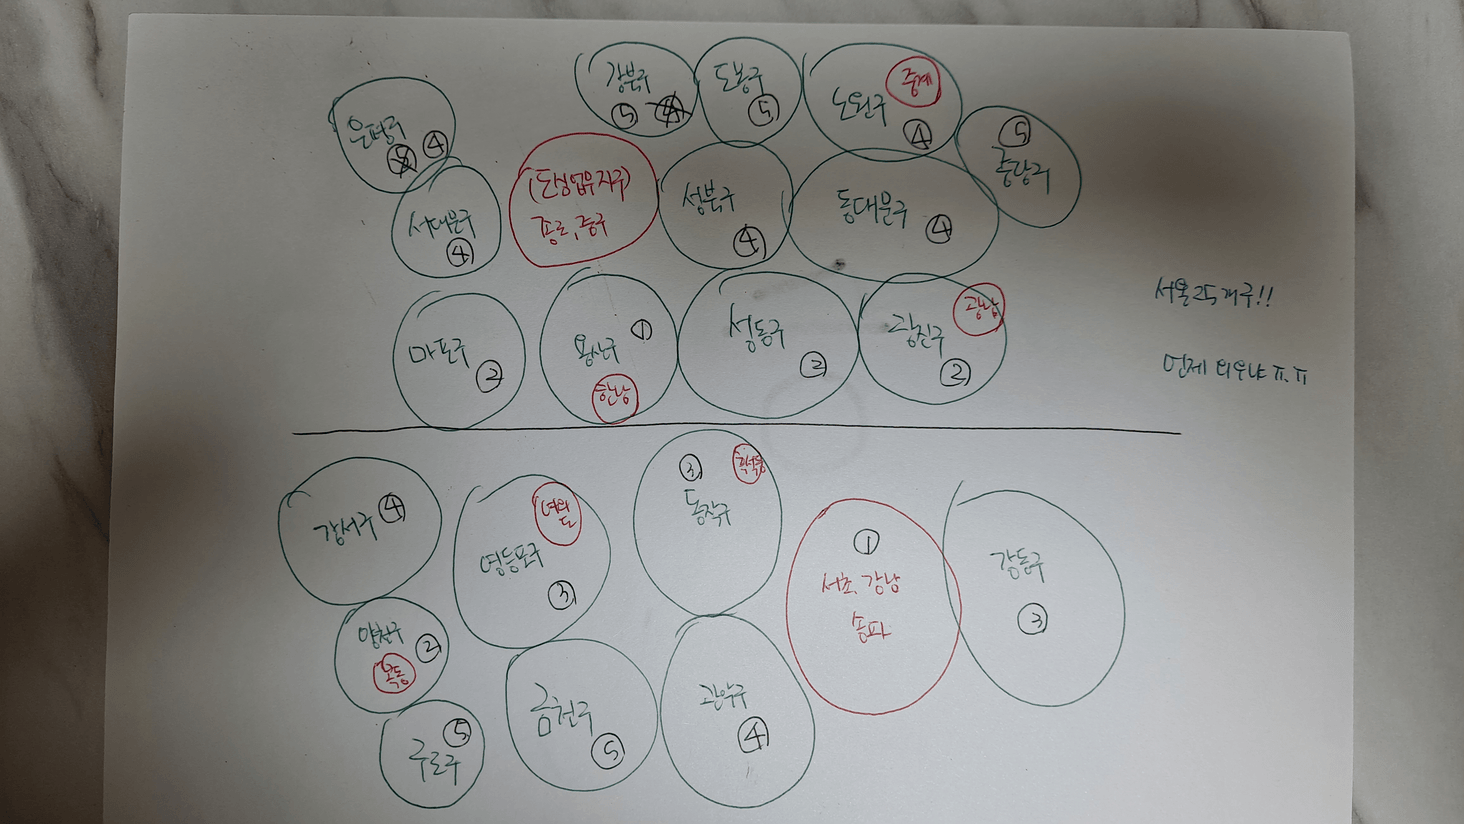 강북구
⑤
도봉구
⑤
노원구
중계
④
은평구
④
⑤
중랑구
서대문구
④
(도심업무지구)
종로, 중구
성북구
④
동대문구
④
마포구
②
용산구 ①
한남
성동구
②
광진구
광남
②
서울 25개구!!
언제 외우냐 ㅠ.ㅠ
강서구 ④
영등포구
여의도
③
③
흑석동
동작구
①
서초, 강남
송파
강동구
③
양천구 ②
목동
구로구
⑤
금천구
⑤
관악구
④